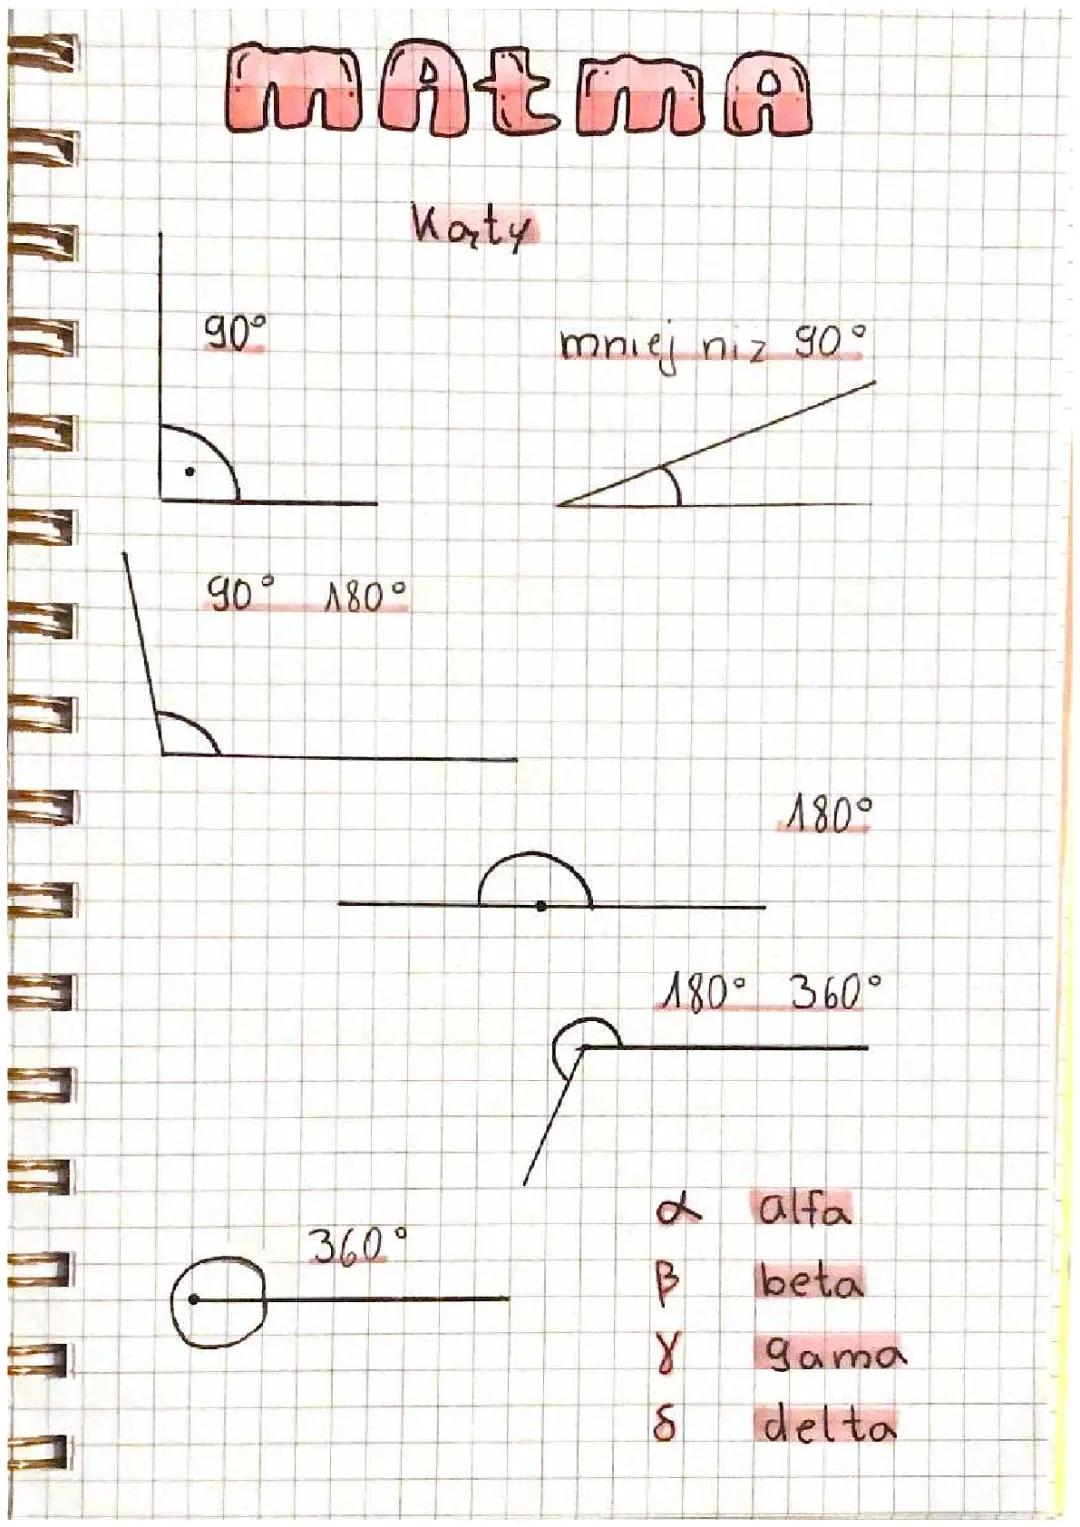 mAtmA
Kąty
90°
mniej niz 90°
90° 180°
180°
180° 360°
360°
α alfa
β beta
γ gama
δ delta